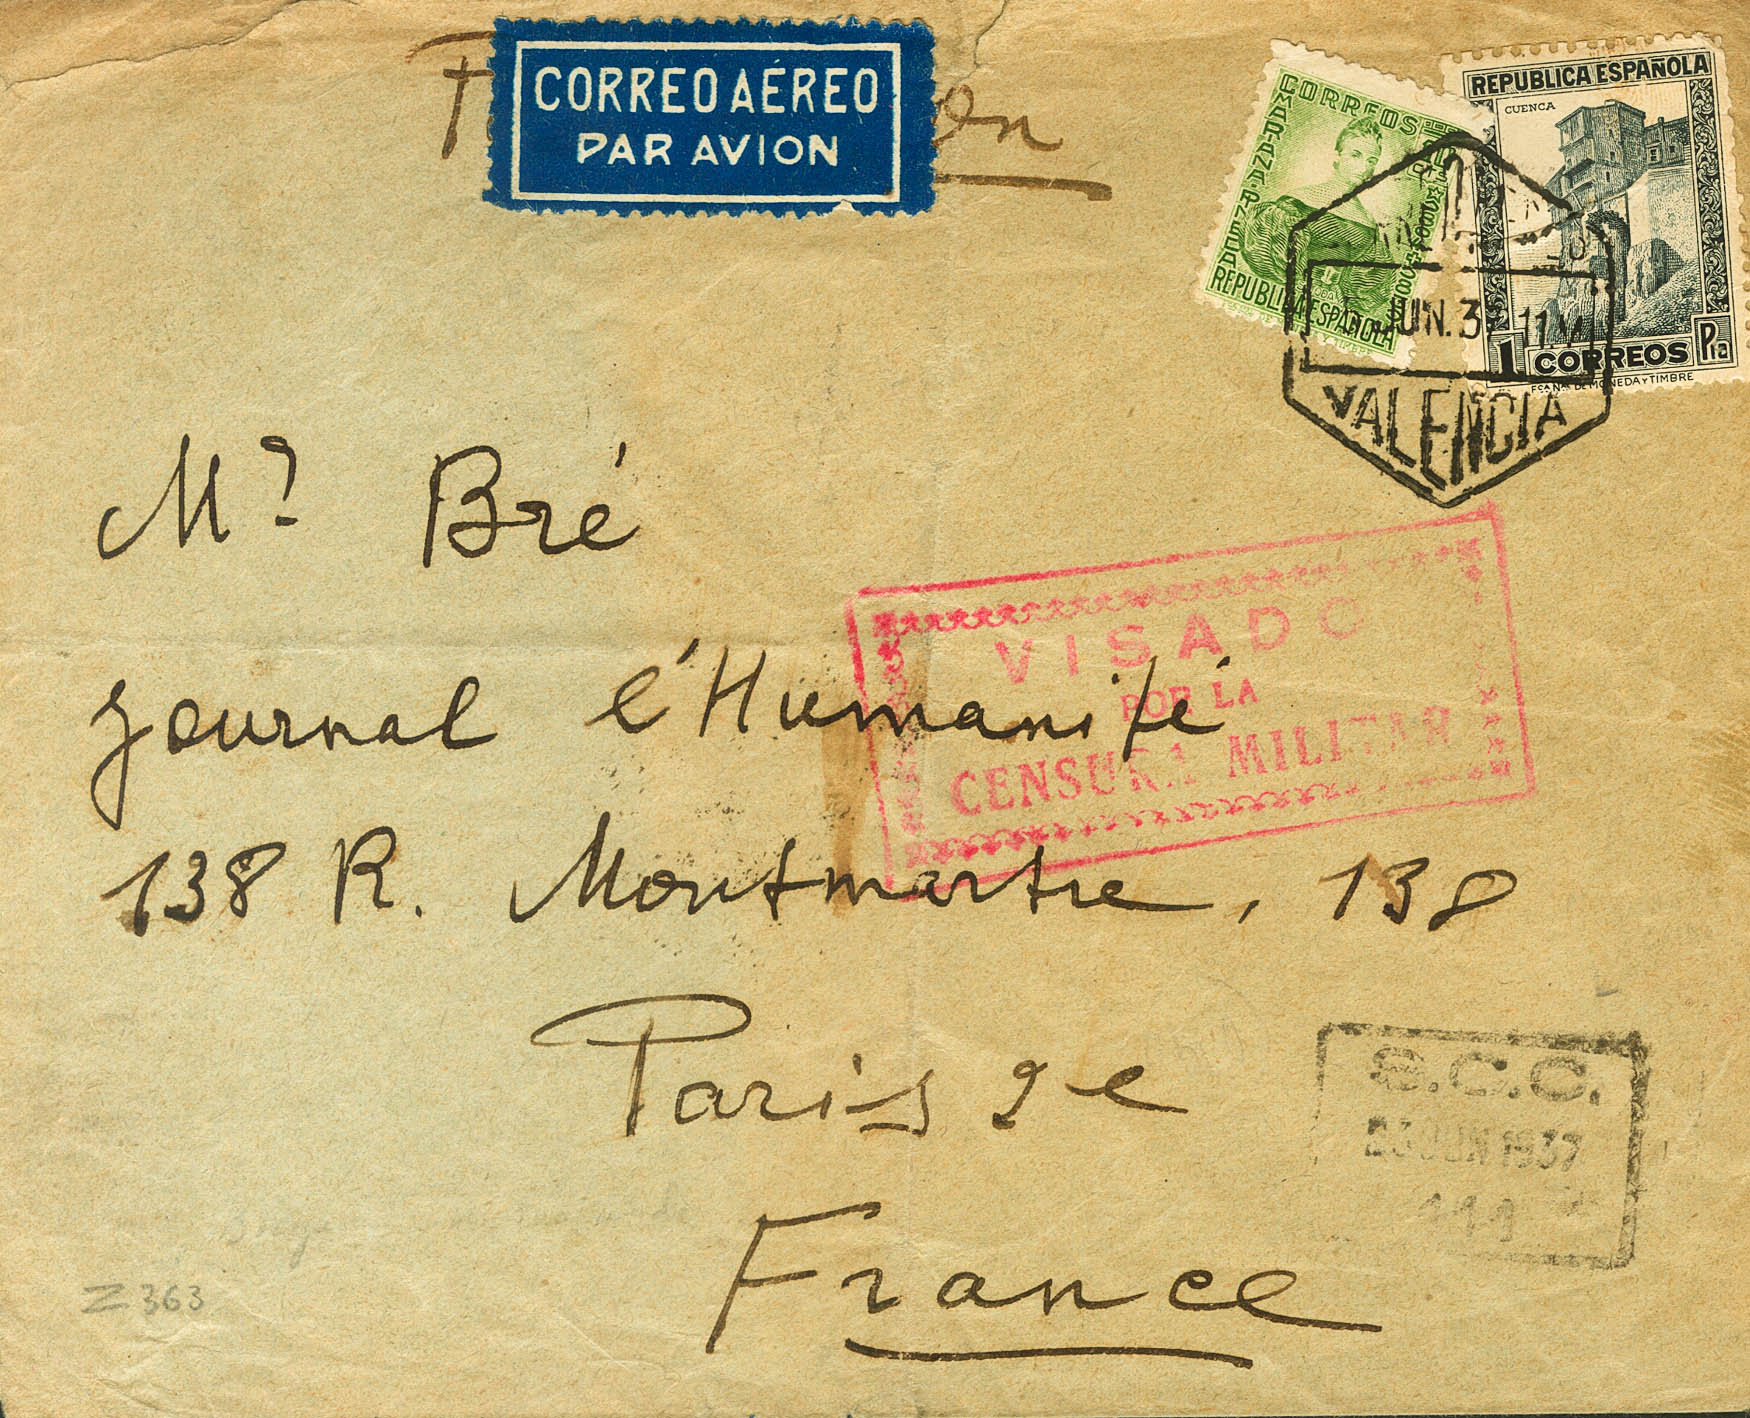 CORREO AÉREO
PAR AVION
CORREOS
MARIANA PINEDA
REPUBLICA ESPAÑOLA
REPUBLICA ESPAÑOLA
CUENCA
1 CORREOS Pta
FCA NAL DE MONEDA Y TIMBRE
JUN. 37 11.M
VALENCIA
Mr Bré
VISADO
POR LA
CENSURA MILITAR
journal l'Humanité
138 R. Montmartre, 138
Paris 2e
S.C.C.
23 JUN 1937
France
Z 363